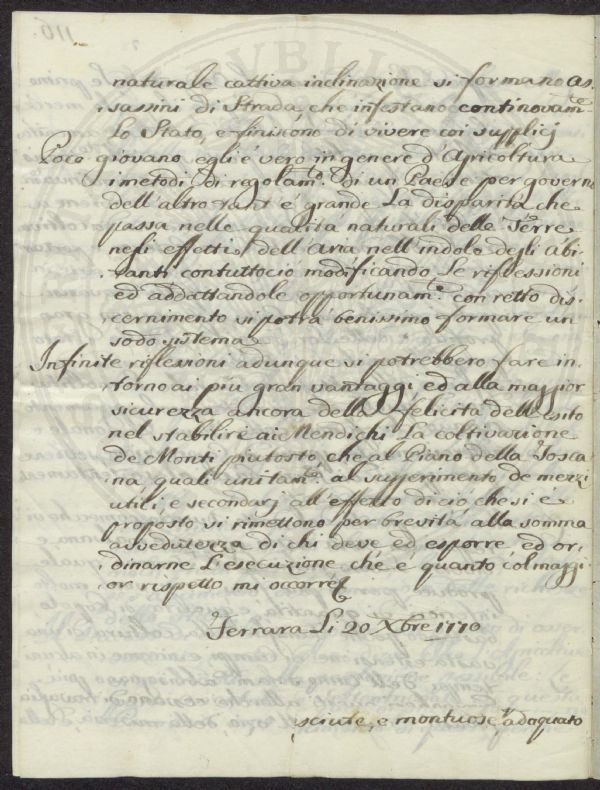 116.
naturale cattiva inclinazione si formano As-
sassini di Strada, che infestano continovam:e
Lo Stato, e finiscono di vivere coi supplicj
Poco giovano egli é vero in genere d'Agricoltura
i metodi di regolam:o di un Paese per governo
dell'altro tant'é grande La disparitá che
passa nelle qualitá naturali delle Terre
negli effetti dell'Aria nell'indole degli Abi-
tanti contuttociò modificando Le riflessioni
ed addattandole opportunam:e con retto dis-
cernimento si potrá benissimo formare un
sodo sistema
Infinite riflessioni adunque si potrebbero fare in-
torno ai piu gran vantaggi ed alla maggior
sicurezza ancora della felicitá dell'esito
nel stabilire ai Mendichi La coltivazione
de Monti piutosto che al Piano della Tosca-
na quali unitam:te al suggerimento de mezzi
utili, e secondarj all'effetto di ció che si é
proposto si rimettono per brevitá alla somma
assedutezza di chi deve ed esporre ed or-
dinarne L'esecuzione ch'é quanto col maggi-
or rispetto mi occorre
Ferrara Li 20 Xbre 1770
sciute, e montuose adoquato